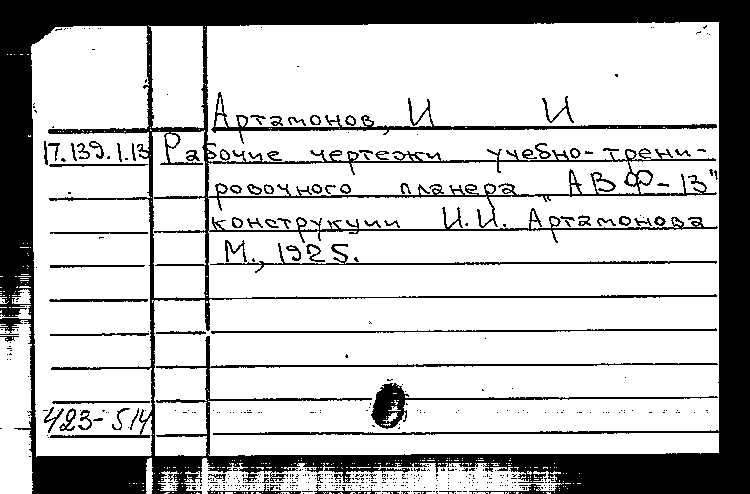 Артамонов, И И
17.139.1.13 Рабочие чертежи учебно-трени-
ровочного планера „АВФ-13"
конструкции И.И. Артамонова
М., 1925.
423-514